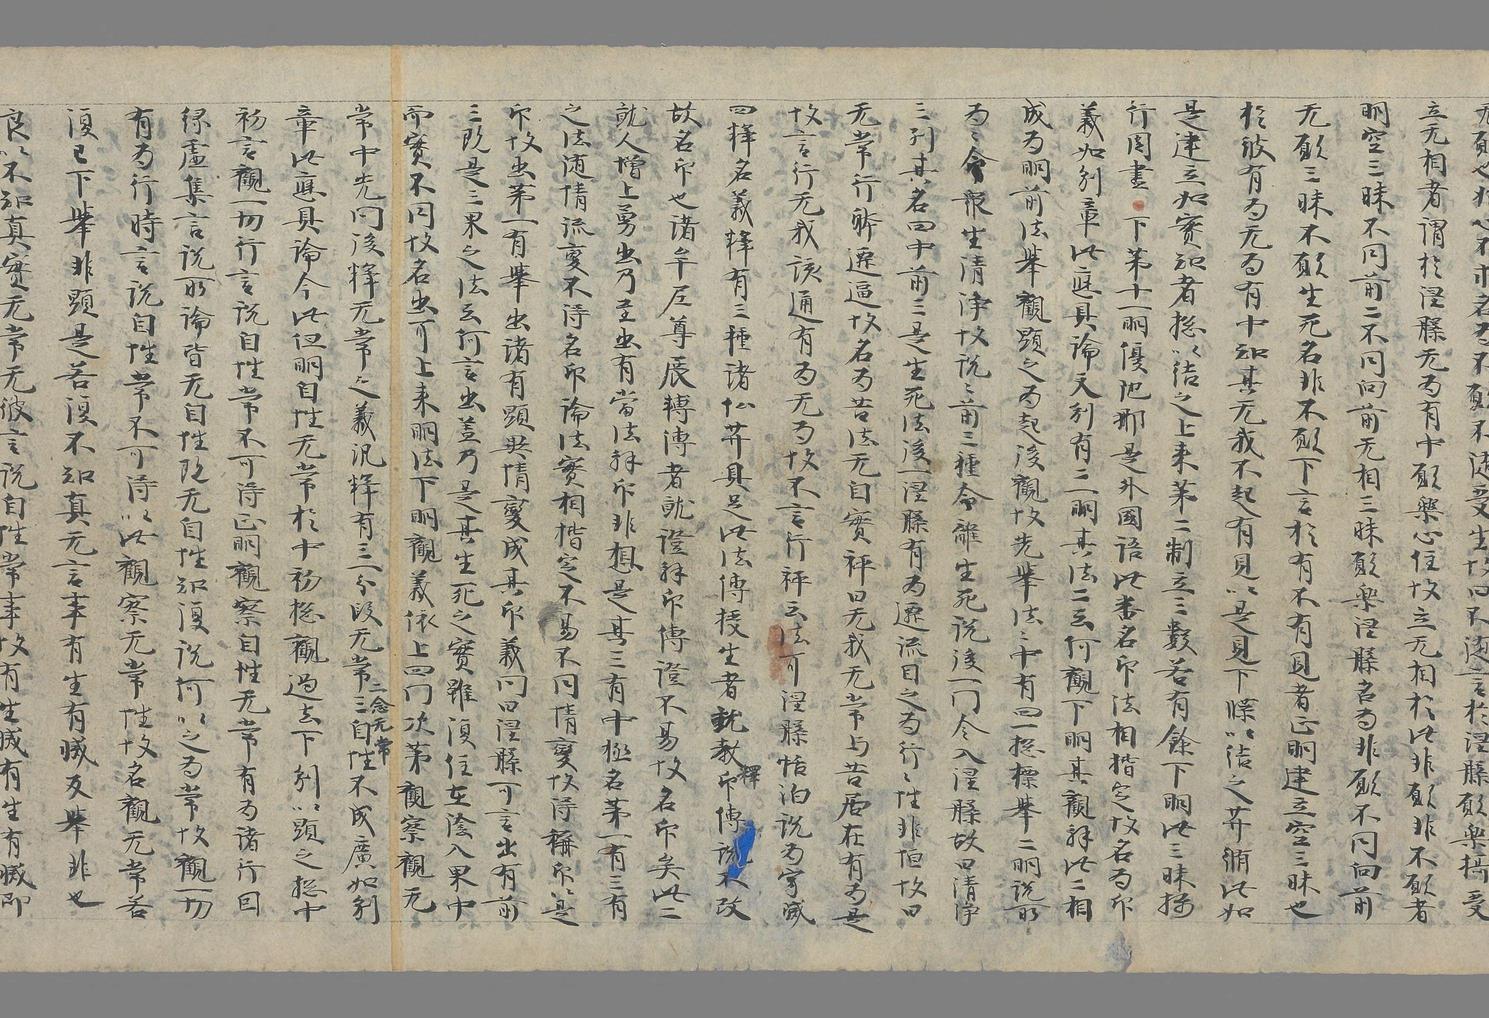 立无相者谓於涅槃无为有中願樂心住故立无相於此非願非不願者
明空三昧不同前二不同向前无相三昧願樂涅槃名为非願不同向前
无願三昧不願生死名非不願下言於有不有見者正明建立空三昧也
於彼有为无为有中知其无我不起有見以是見下牒以结之菩薩如
是建立如實知者揔以结之上来苐二制立三數若有餘下明此三昧攝
行周盡下苐十一明優陁那是外國語此番名印法相楷定故名为印
義如别章此應具論文别有二一明其法二云何觀下明其觀釋此二相
成为明前法舉觀顯之为起後觀故先舉法法中有四一揔標舉二明説所
为为令衆生清淨故説説前三種令離生死説後一門令入涅槃故曰清淨
三列其名四中前三是生死法後一涅槃有为遷流目之为行行性非恒故曰
无常行斯遷逼故名为苦法无自實稱曰无我无常与苦居在有为是
故言行无我該通有为无为故不言行稱云法可涅槃恬泊説为宁滅
四釋名義釋有三種諸仏菩薩具足此法傳授生者就教釋印傳説不改
故名印也諸牟尼尊展轉傳者就證釋印傳證不易故名印矣此二
就人增上勇出乃至出有當法釋印非想是其三有中極名苐一有三有
之法随情流變不得名印論法實相楷定不易不同情變故得稱印以是
印故出苐一有舉出諸有顯與情變成其印義問曰涅槃可言出有前
三既是三界之法云何言出盖乃是其生死之實雖復住在陰入界中
而實不同故名出可上来明法下明觀義依上四門次苐觀察觀无
常中先問後釋无常之義汎釋有三一分段无常二念无常三自性不成廣如别
章此應具論今此但明自性无常於中初揔觀過去下别以顯之揔中
初言觀一切行言説自性常不可得正明觀察自性无常有为諸行因
緣虚集言説所論皆无自性既无自性知復説何以之为常故觀一切
有为行時言説自性常不可得以此觀察无常性故名觀无常若
復已下舉非顯是若復不知真无言事有生有滅反舉非也
良以不知真實无常无彼言説自性常事故有生滅有生有滅即